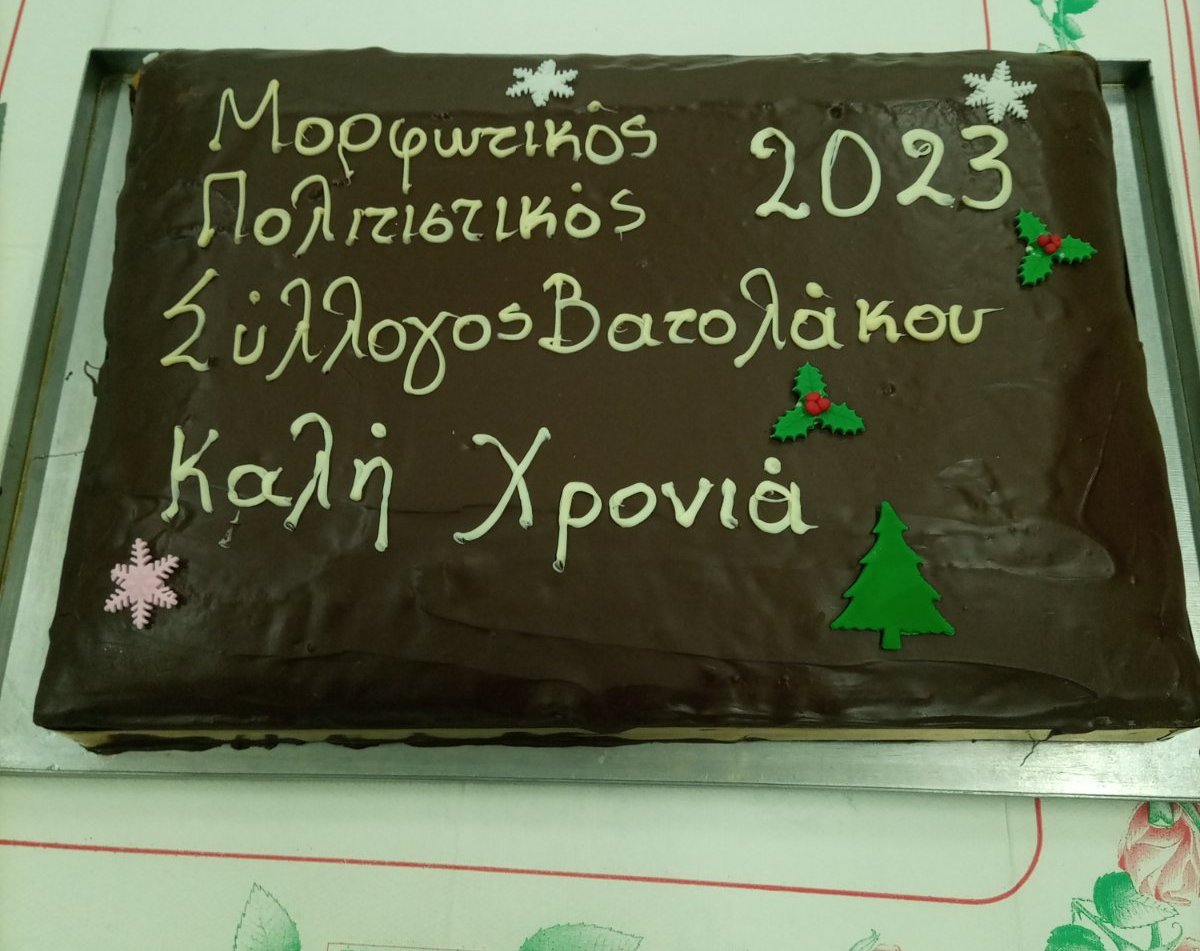 Μορφωτικός
Πολιτιστικός 2023
Σύλλογος Βατολάκου
Καλή Χρονιά